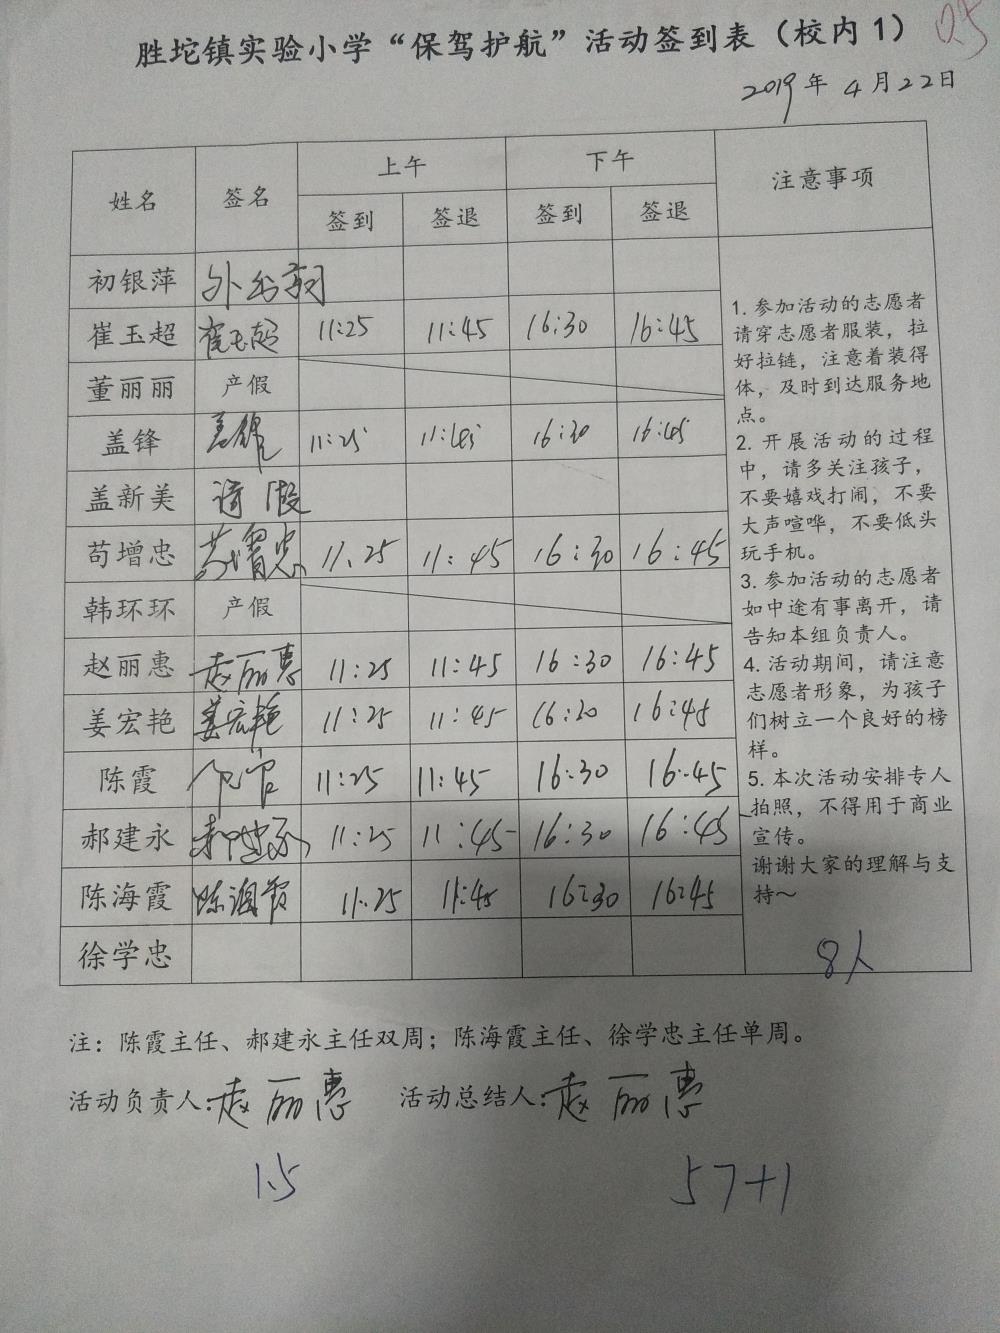 胜坨镇实验小学“保驾护航”活动签到表（校内1）
0.5
2019年 4月22日
姓名 签名 上午 下午 注意事项
签到 签退 签到 签退
初银萍 外出学习
崔玉超 崔玉超 11:25 11:45 16:30 16:45
董丽丽 产假
盖锋 盖锋 11:25 11:45 16:30 16:45
盖新美 请假
苟增忠 苟增忠 11:25 11:45 16:30 16:45
韩环环 产假
赵丽惠 赵丽惠 11:25 11:45 16:30 16:45
姜宏艳 姜宏艳 11:25 11:45 16:20 16:45
陈霞 11:25 11:45 16:30 16:45
郝建永 郝建永 11:25 11:45 16:30 16:45
陈海霞 陈海霞 11:25 11:45 16:30 16:45
徐学忠
1. 参加活动的志愿者
请穿志愿者服装，拉
好拉链，注意着装得
体，及时到达服务地
点。
2. 开展活动的过程
中，请多关注孩子，
不要嬉戏打闹，不要
大声喧哗，不要低头
玩手机。
3. 参加活动的志愿者
如中途有事离开，请
告知本组负责人。
4. 活动期间，请注意
志愿者形象，为孩子
们树立一个良好的榜
样。
5. 本次活动安排专人
拍照，不得用于商业
宣传。
谢谢大家的理解与支
持～
8人
注：陈霞主任、郝建永主任双周；陈海霞主任、徐学忠主任单周。
活动负责人：赵丽惠 活动总结人：赵丽惠
1.5 57+1